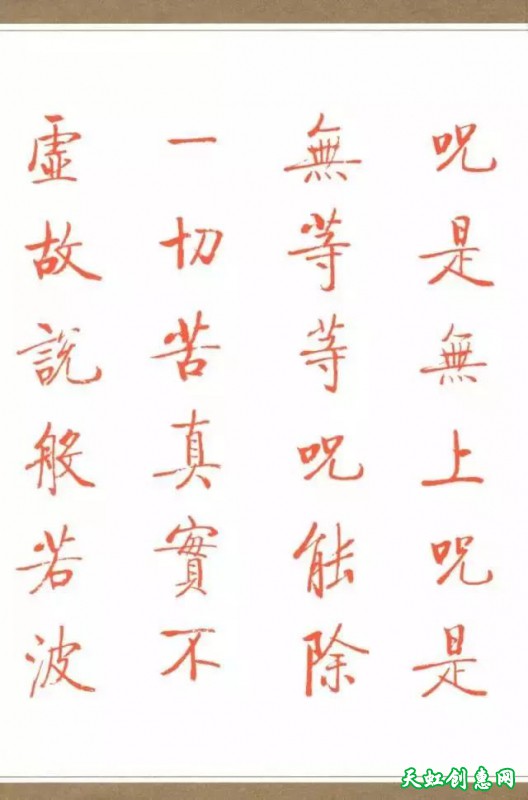 咒是無上咒是
無等等咒能除
一切苦真實不
虛故說般若波
天虹创惠网